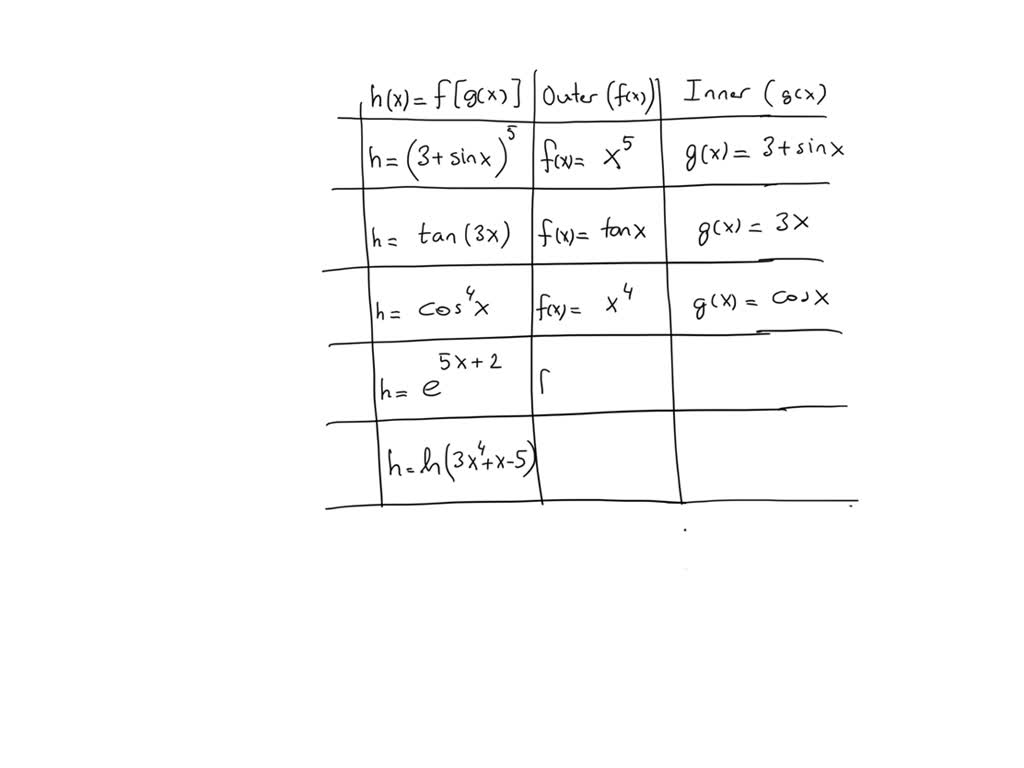 h(x) = f[g(x)] Outer (f(x)) Inner (g(x)
h = (3 + sinx)⁵ f(x) = x⁵ g(x) = 3 + sinx
h = tan(3x) f(x) = tanx g(x) = 3x
h = cos⁴x f(x) = x⁴ g(x) = cosx
h = e^5x+2
h = ln(3x⁴+x-5)